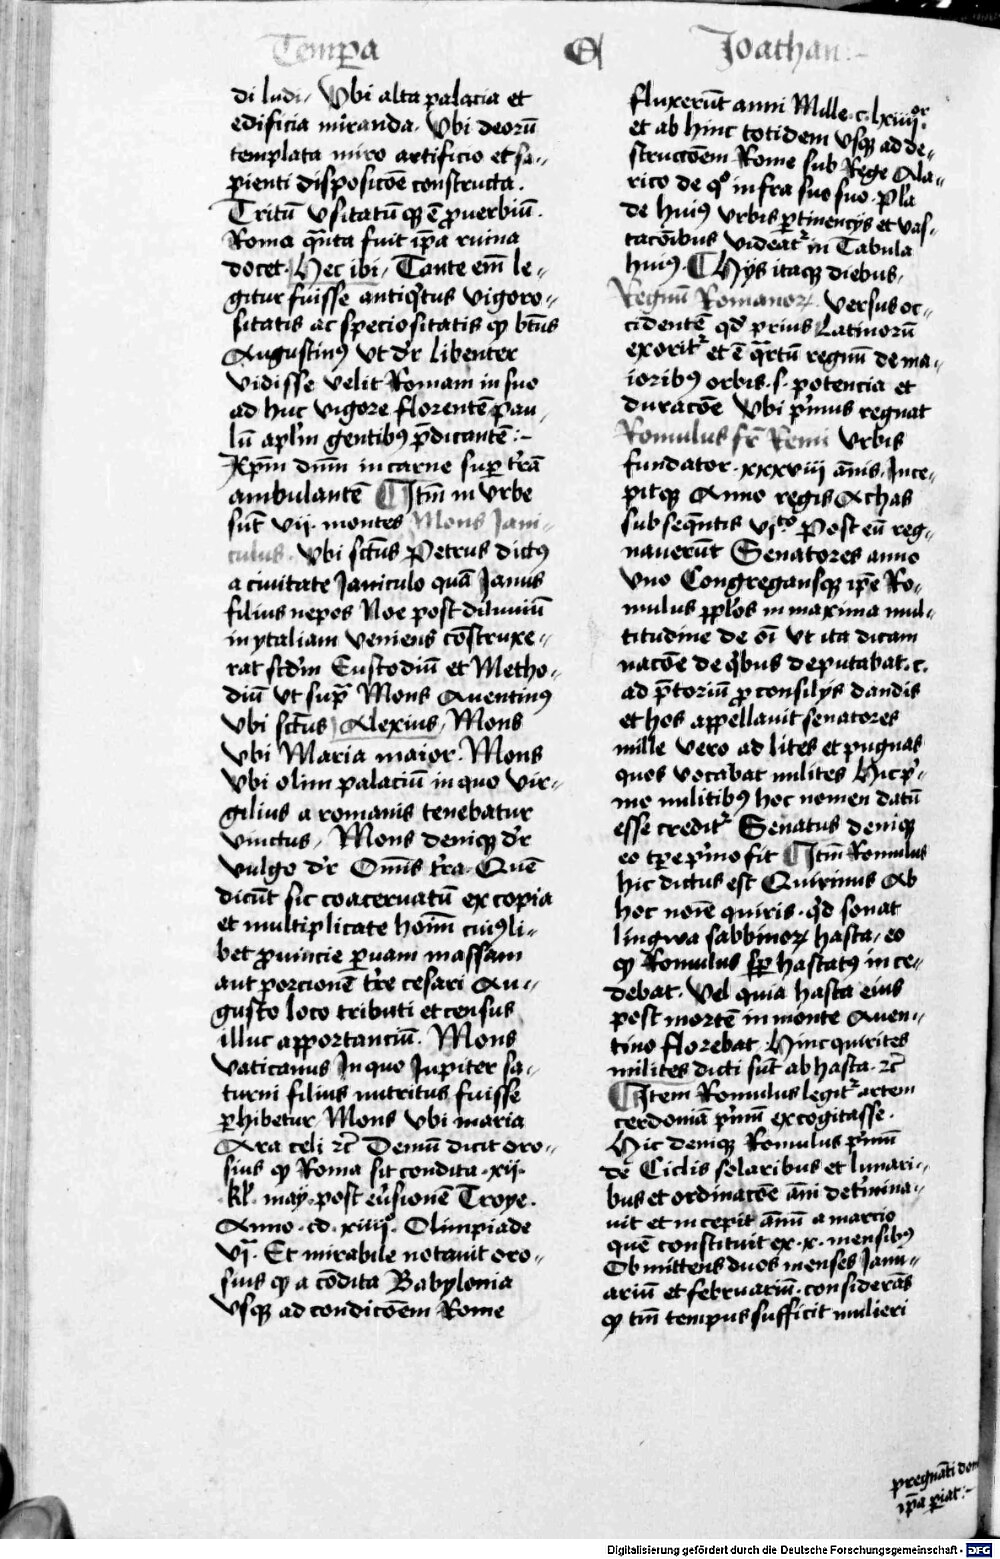 Tempora Et Joathan :-
di ludi, Vbi alta palacia et
edificia miranda. Vbi deorū
templata miro artificio et sa-
pienti disposicōe constructa.
Tritū vsitatūqꝫ ē ꝓuerbiū.
Roma q̄nta fuit ip̄a ruina
docet. Hec ibi, Tante em̄ le-
gitur fuisse antiq̄tus vigoro-
sitatis ac speciositatis qꝫ btūs
Augustinꝰ vt dr̄ libenter
vidisse velit Romam in suo
ad huc vigore florentē pau-
lū apl̄m gentibꝰ p̄dicantē :-
Xpm̄ dnm̄ in carne sup̄ tr̄a
ambulantē ¶ Itm̄ in vrbe
sūt vii. montes Mons Jani-
culus. vbi sctūs Petrus dictꝰ
a ciuitate Janiculo quā Janus
filius nepos Noe post diluuiū
in ytaliam veniens cōstruxe-
rat scdm̄ Eustodiū et Metho-
diū vt sup̄ Mons Auentinꝰ
vbi sctūs Alexius, Mons
vbi Maria maior. Mons
vbi olim palaciū in quo vir-
gilius a romanis tenebatur
vinctus, Mons deniqꝫ dr̄
vulgo dr̄ Om̄is tr̄a. Quē
dicūt sic coaceruatū ex copia
et multiplicate hoīm̄ cuiꝰli-
bet ꝓuincie ꝑuam massam
aut porcionē tr̄e cesari Au-
gusto loco tributi et census
illuc apportanciū. Mons
vaticanus In quo Jupiter sa-
turni filius nutritus fuisse
ꝑhibetur Mons vbi maria
Ara celi ⁊c̄ Demū dicit oro-
sius qꝫ Roma sit condita .xii.
kl̄. may. post eūsionē Troye.
Anno .cd. xiiiiᵒ. Olimpiade
vi. Et mirabile notauit oro-
sius qꝫ a cōdita Babylonia
vsqꝫ ad condicōem Rome
fluxerūt anni Mille .c. lxiiiiᵒʳ.
et ab hinc totidem vsqꝫ ad de-
struccōem Rome sub Rege Ala-
rico de qᵒ infra suo suo. pl̄a
de huiꝰ vrbis ꝑtinencijs et vas-
tacōibus videatʳ in Tabula
huiꝰ. ¶ Hijs itaqꝫ diebus,
Regnū Romanoꝝ. versus oc-
cidentē qd̄ prius Latinorū
exoritʳ et ē q̄rtū regnū de ma-
ioribꝰ orbis .s. potencia et
duracōe Vbi p̄mus regnat
Romulus fr̄ Remi vrbis
fundator. xxxviii ānis. Ince-
pitqꝫ Anno regis Achas
subseqn̄tis viᵗᵒ. Post eū reg-
nauerūt Senatores anno
vno Congregansqꝫ ip̄e Ro-
mulus pplōs in maxima mul-
titudine de oī vt ita dicam
nacōe de q̄bus deputabat .c.
ad p̄toriū ꝓ consilijs dandis
et hos appellauit senatores
mille vero ad lites et pugnas
quos vocabat milites Hic p̄-
mo militibꝰ hoc nomen datū
esse creditʳ Senatus deniqꝫ
eo tpe p̄mo fit ¶ Itm̄ Romulus
hic dictus est Quirinus Ab
hoc noīe quiris. qd̄ sonat
lingwa sabbinoꝝ hasta, eo
qꝫ Romulus sꝑ hastatꝰ ince-
debat. Vel quia hasta eius
post mortē in monte Auen-
tino florebat. Hinc quirites
milites dicti sūt ab hasta. ⁊c̄
¶ Item Romulus legitʳ artem
cerdoniā p̄mū excogitasse.
Hic deniqꝫ Romulus p̄mū
de Ciclis solaribus et lunari-
bus et ordinacōe āni det̄mina-
uit et incepit ānū a marcio
quē constituit ex .x. mensibꝰ
Obmittens duos menses Janu-
ariū et februariū. considerās
qꝫ tm̄ tempus sufficit mulieri
pregnāti don
ip̄a pariat :-
Digitalisierung gefördert durch die Deutsche Forschungsgemeinschaft - DFG